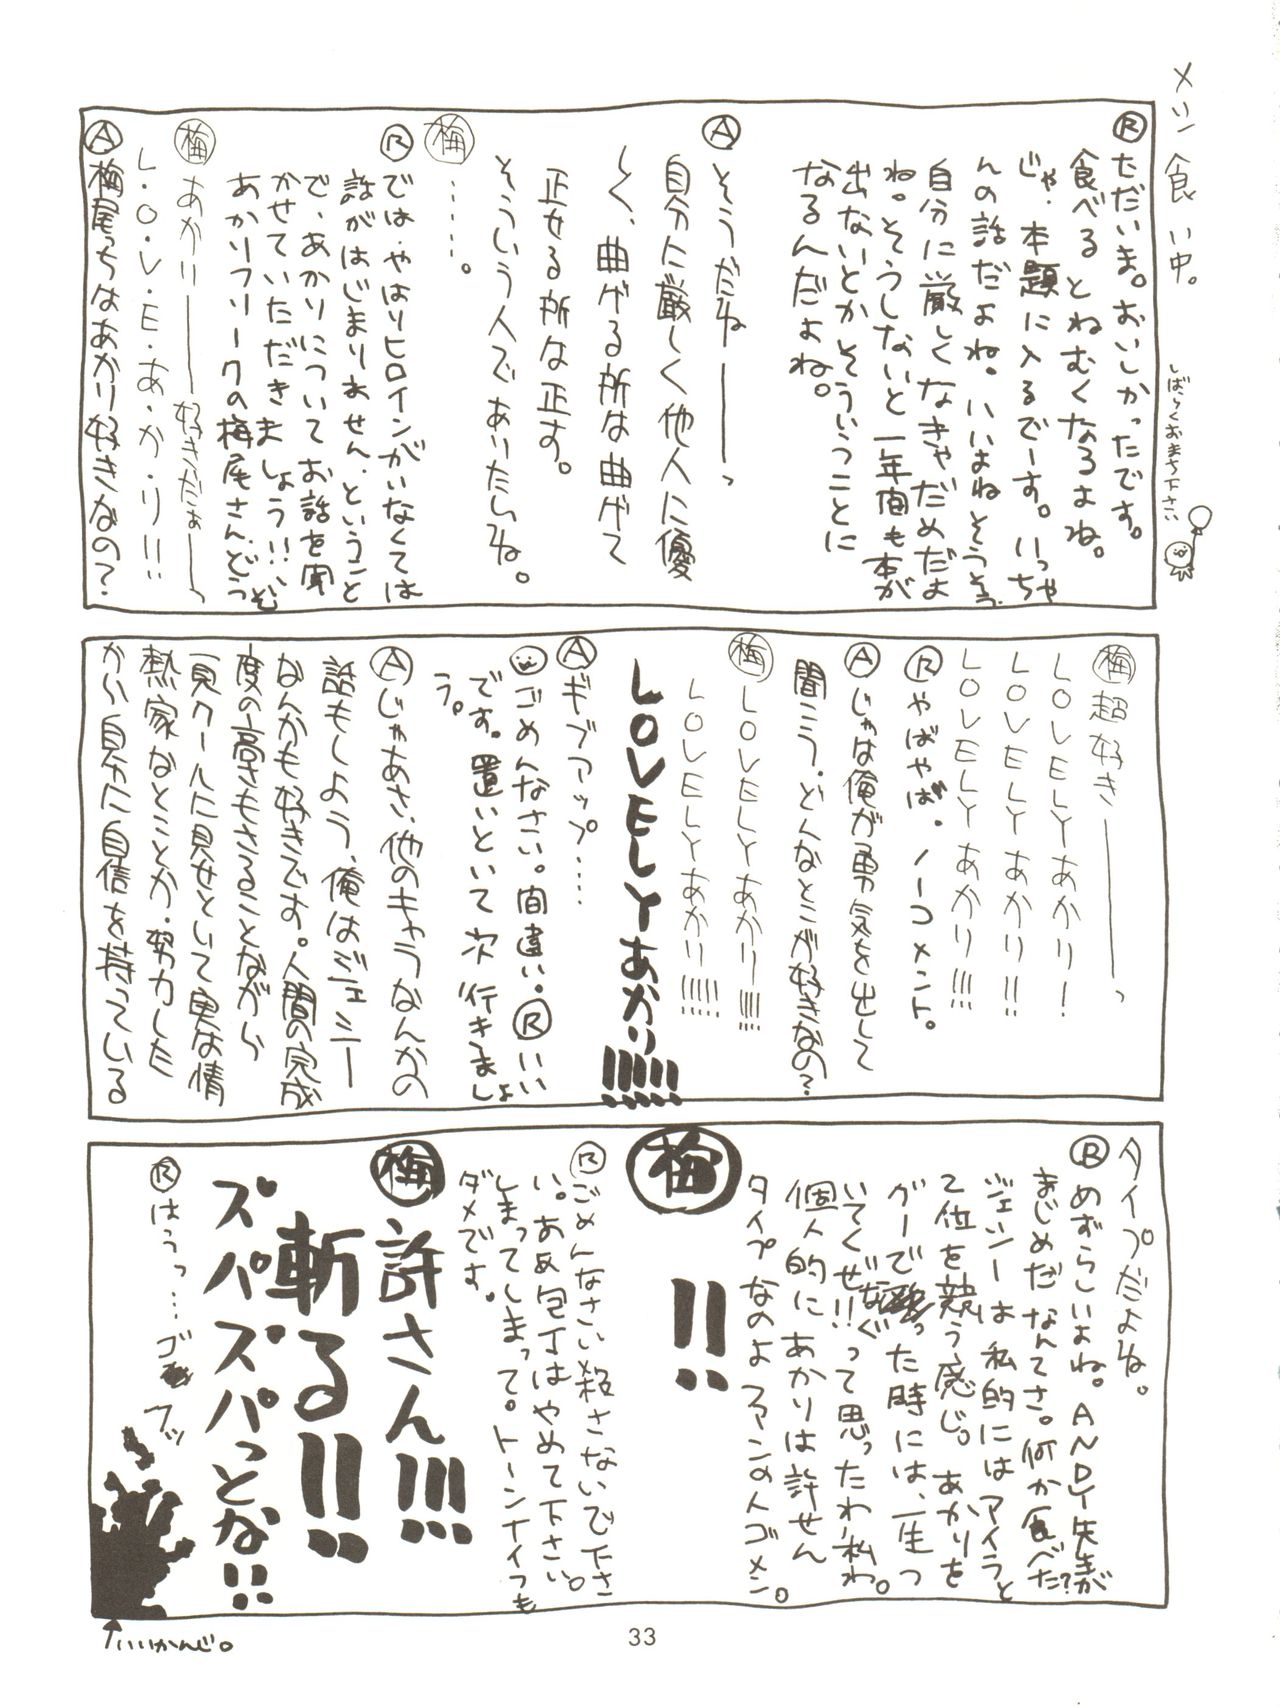 メシ食い中。
しばらくおまち下さい
Ⓡ ただいま。おいしかったです。
食べるとねむくなるよね。
じゃ、本題に入るでーす。いっちゃ
んの話だよね。いいよねそうそう
自分に厳しくなきゃだめだよ
ね。そうしないと一年間も本が
出ないとかそういうことに
なるんだよね。
Ⓐ そうだねーーっ
自分に厳しく他人に優
しく、曲げる所は曲げて
正せる所は正す。
そういう人でありたいね。
梅 ……。
Ⓡ では、やはりヒロインがいなくては
話がはじまりません。ということ
で、あかりについてお話を聞
かせていただきましょう!!、
あかりフリークの梅尾さんどうぞ
梅 あかりーーー好きだぁーーっ
L・O・V・E・あ・か・り!!
Ⓐ 梅尾っちはあかり好きなの?
梅 超好きーーーーっ
LOVELYあかり!
LOVELYあかり!!
LOVELYあかり!!!
Ⓡ やばやば、ノーコメント。
Ⓐ じゃは俺が勇気を出して
聞こう、どんなとこが好きなの?
梅 LOVELYあかり!!!!
LOVELYあかり!!!!!
LOVELYあかり!!!!!!
Ⓐ ギブアップ……
ごめんなさい。間違い。Ⓡ いい
です。置いといて次、行きましょ
う。
Ⓐ じゃあさ、他のキャラなんかの
話もしよう、俺はジェニー
なんかも好きです。人間の完成
度の高さもさることながら
一見クールに見せといて実は情
熱家なとことか、努力した
から自分に自信を持っている
タイプだよね。
Ⓡ めずらしいよね。ANDY先生が
まじめだなんてさ。何か食べた?
ジェシーは私的にはアイラと
2位を競う感じ。あかりを
ガーでなぐった時には、一生つ
いてくぜ!!って思ったわ私わ。
個人的にあかりは許せん
タイプなのよファンの人ゴメン。
梅 !!
Ⓡ ごめんなさい殺さないで下さ
い。ああ包丁はやめて下さい。
しまってしまって。トーンナイフも
ダメです。
梅 許さん!!!
斬る!!
ズパズパっとな!!
Ⓡ はうっ…ゴフッ
↑いいかんじ。
33